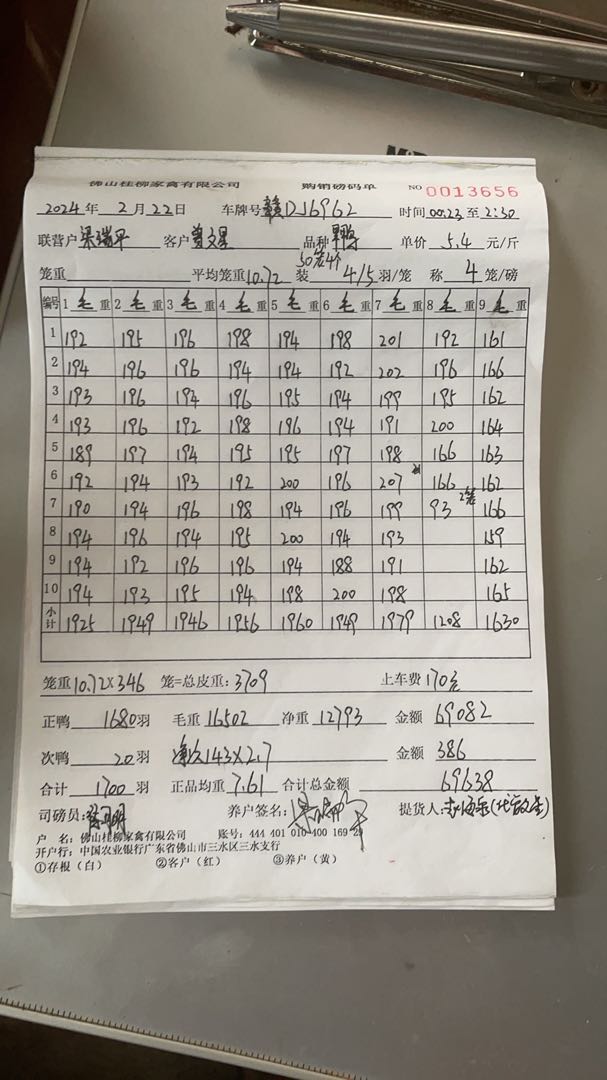 佛山桂柳家禽有限公司 购销磅码单 NO 0013656
2024年 2月22日 车牌号 赣DJ6962 时间 00:23 至 2:30
联营户 梁瑞平 客户 曾文星 品种 单价 5.4 元/斤
50笼4个
笼重 平均笼重10.72 装 4/5 羽/笼 称 4 笼/磅
编号 1 毛重 2 毛重 3 毛重 4 毛重 5 毛重 6 毛重 7 毛重 8 毛重 9 毛重
1 192 195 196 198 194 198 201 192 161
2 194 196 196 194 194 192 202 196 166
3 193 196 194 196 195 194 199 195 162
4 193 196 192 198 196 194 191 200 164
5 189 197 194 195 195 197 198 166 163
6 192 194 193 192 200 196 207 166 162
7 190 194 196 198 194 196 199 93 2笼 166
8 194 196 194 195 200 194 193 159
9 194 192 196 196 194 188 191 162
10 194 193 195 194 198 200 198 165
小计 1925 1949 1946 1956 1960 1949 1979 1208 1630
笼重10.72×346 笼=总皮重:3709 上车费170元
正鸭 1680羽 毛重16502 净重12793 金额 69082
次鸭 20羽 净欠143×2.7 金额 386
合计 1700 羽 正品均重7.61 合计总金额 69638
司磅员: 养户签名: 提货人:
户 名: 佛山桂柳家禽有限公司 账号: 444 401 010 400 169 29
开户行: 中国农业银行广东省佛山市三水区三水支行
①存根(白) ②客户(红) ③养户(黄)